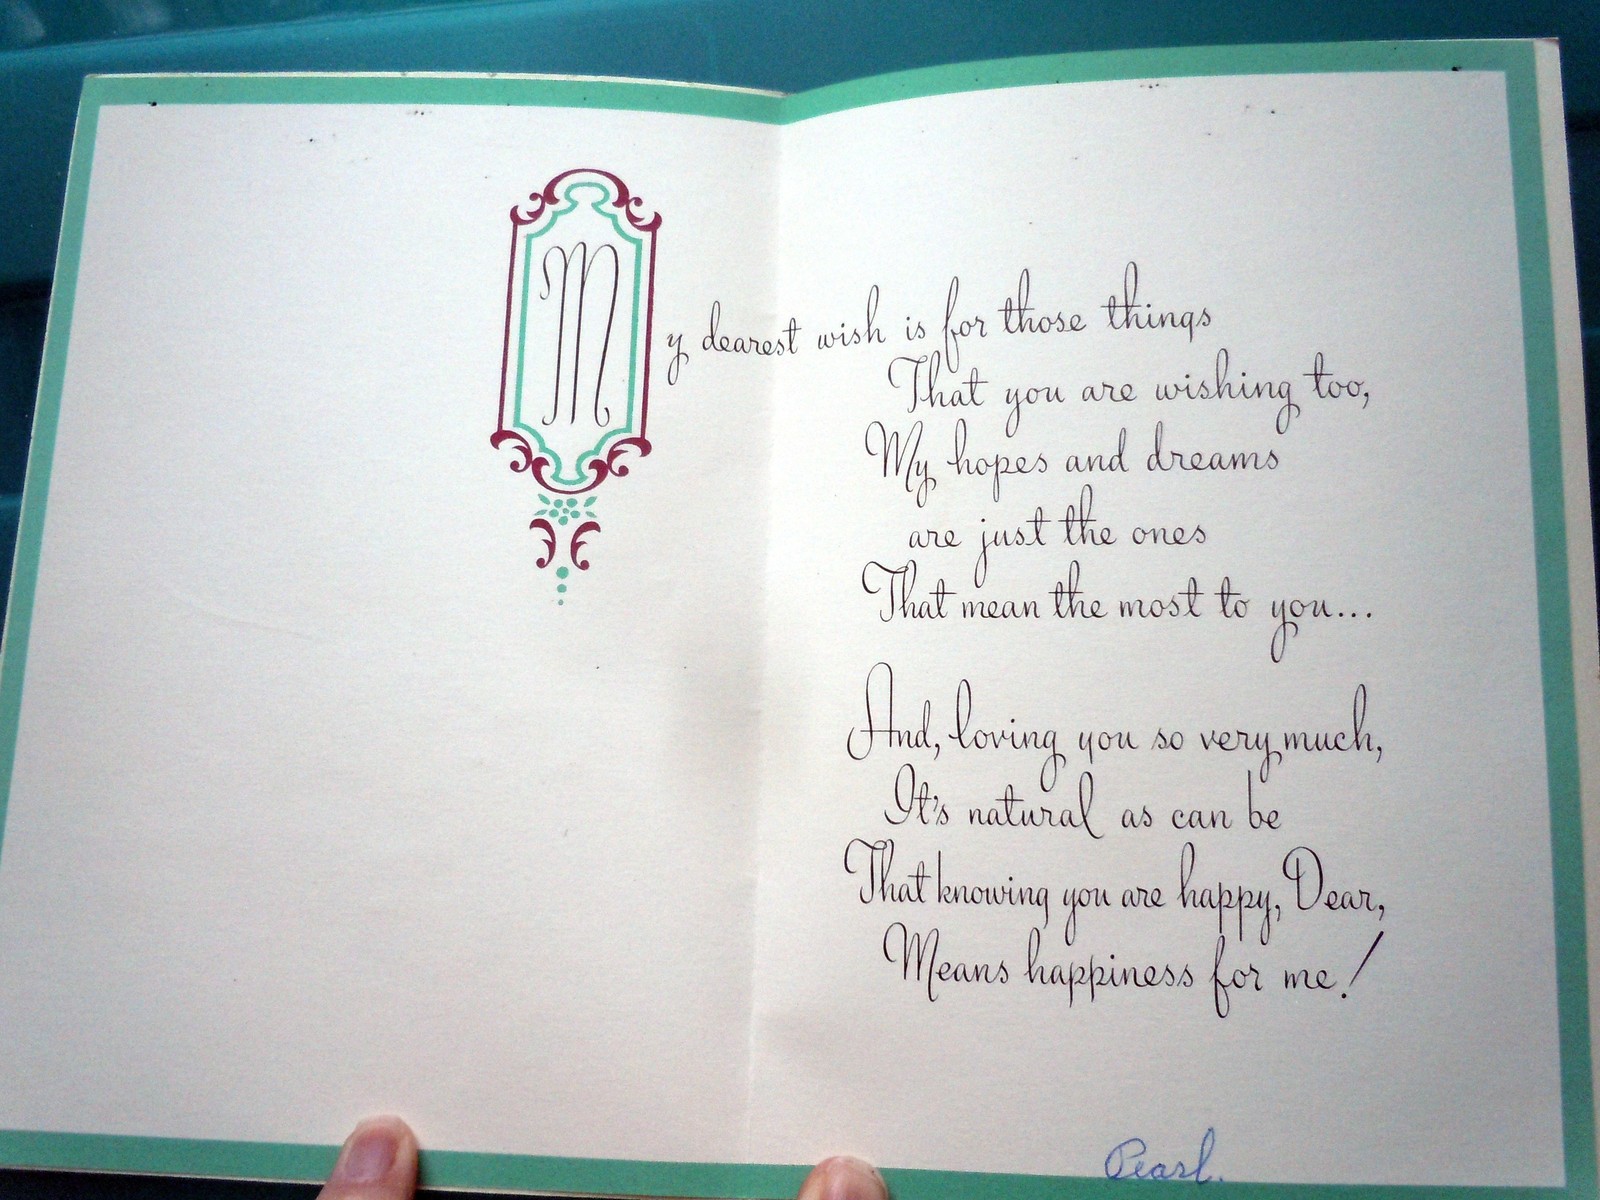 My dearest wish is for those things
That you are wishing too,
My hopes and dreams
are just the ones
That mean the most to you...
And, loving you so very much,
It's natural as can be
That knowing you are happy, Dear,
Means happiness for me!
Pearl.